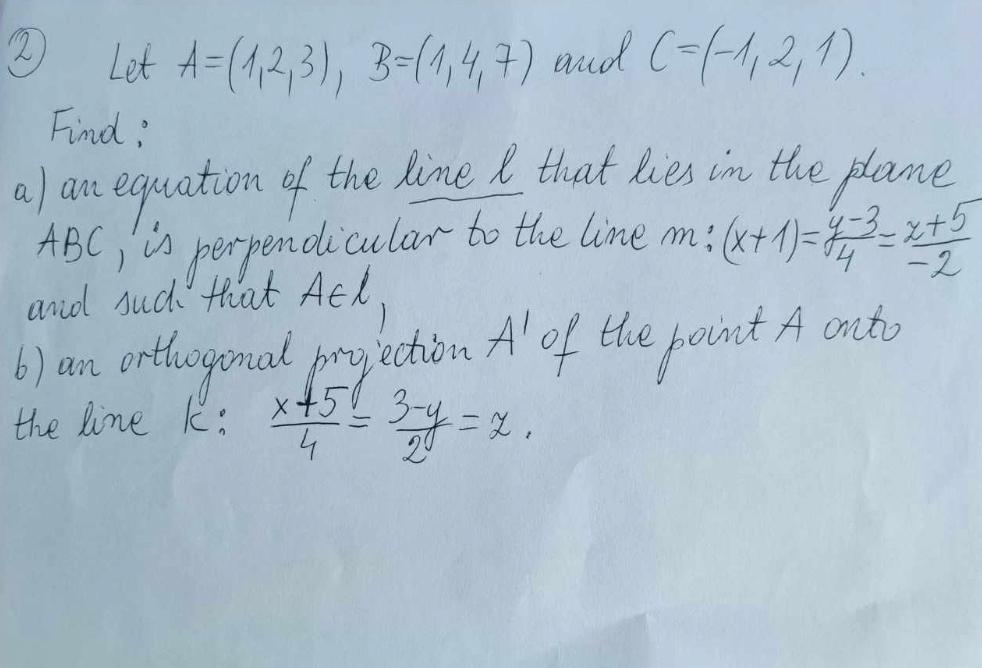 ② Let A=(1,2,3), B=(1,4,7) and C=(-1,2,1).
Find:
a) an equation of the line l that lies in the plane
ABC, is perpendicular to the line m: (x+1)=\frac{y-3}{4}=\frac{z+5}{-2}
and such that A∈l,
b) an orthogonal projection A' of the point A onto
the line k: \frac{x+5}{4}=\frac{3-y}{2}=z.